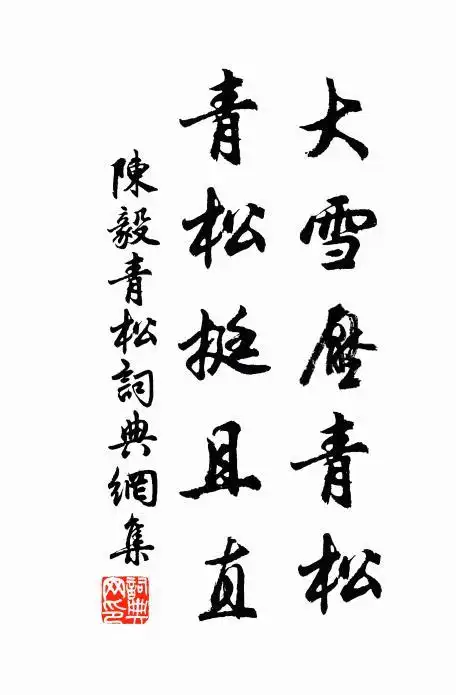 大雪壓青松
青松挺且直
陳毅青松詞典網集
詞典網印